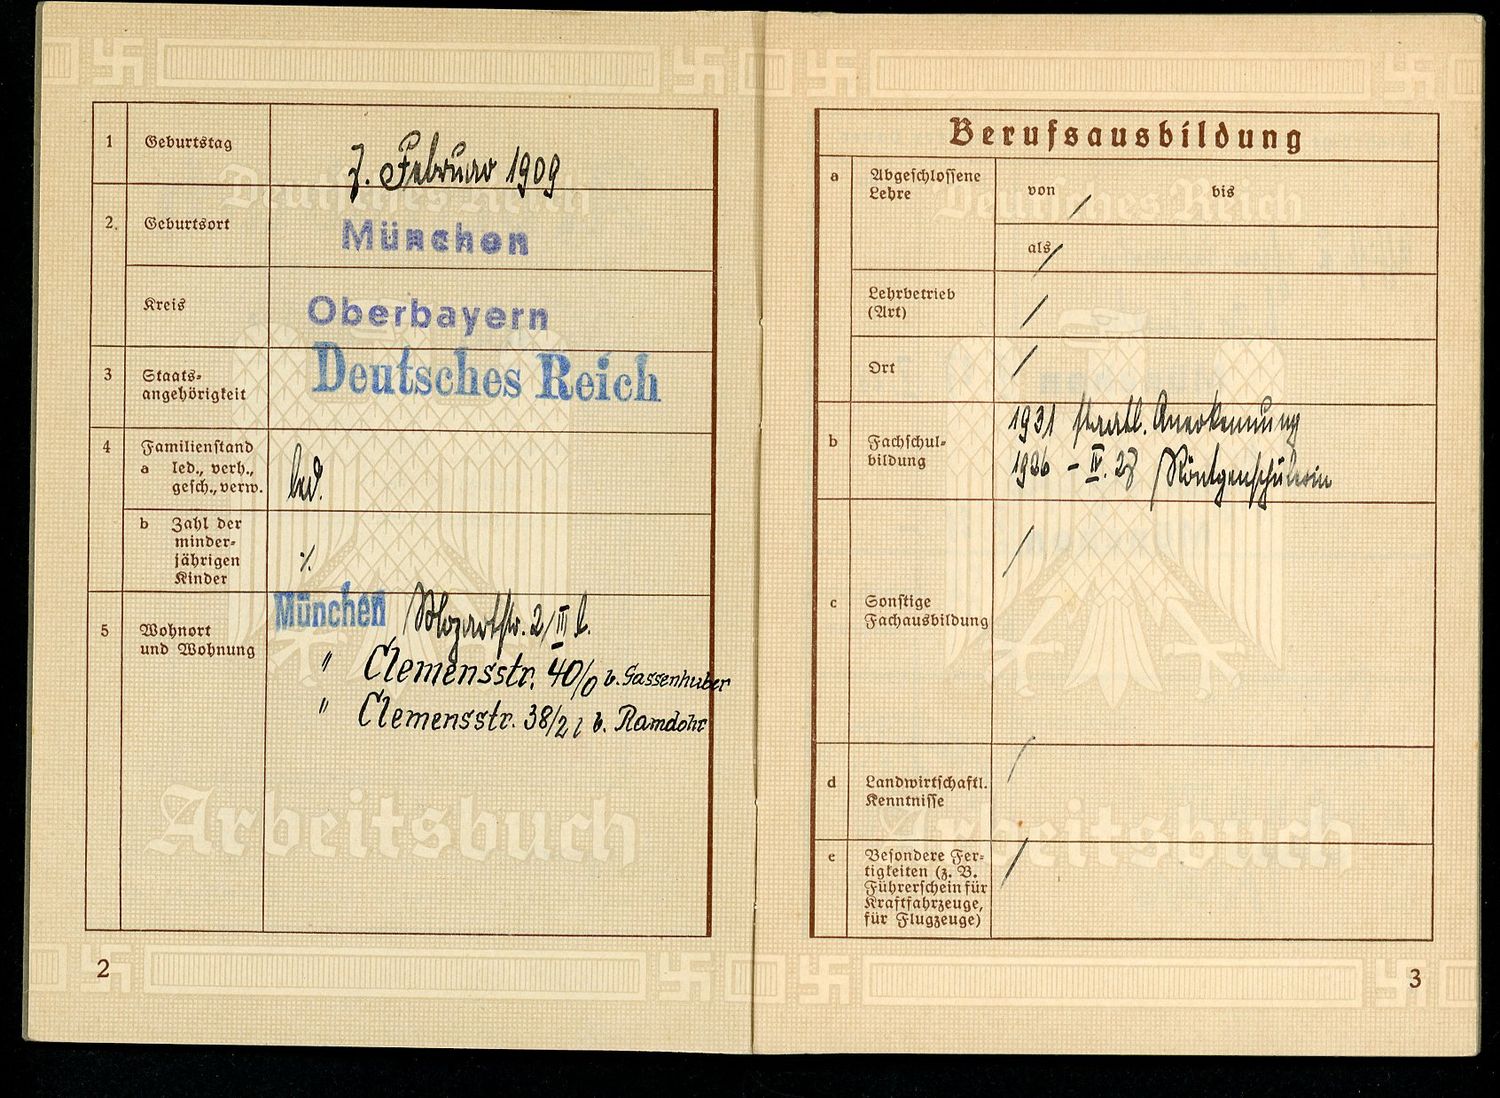 1 Geburtstag 7. Februar 1909
2. Geburtsort München
Kreis Oberbayern
3 Staats-
angehörigkeit
Deutsches Reich
4 Familienstand
a led., verh.,
gesch., verw.
led.
b Zahl der
minder-
jährigen
Kinder
·/.
5 Wohnort
und Wohnung
München Mozartstr. 2/III l.
" Clemensstr. 40/0 b. Gassenhuber
" Clemensstr. 38/2 l b. Ramdohr
Deutsches Reich
Arbeitsbuch
2
Berufsausbildung
a Abgeschlossene
Lehre
von / bis
als /
Lehrbetrieb
(Art)
/
Ort /
b Fachschul-
bildung
1931 staatl. Anerkennung
1926 – IV. 28 Röntgenschülerin
c Sonstige
Fachausbildung
/
d Landwirtschaftl.
Kenntnisse
/
e Besondere Fer-
tigkeiten (z. B.
Führerschein für
Kraftfahrzeuge,
für Flugzeuge)
/
Deutsches Reich
Arbeitsbuch
3